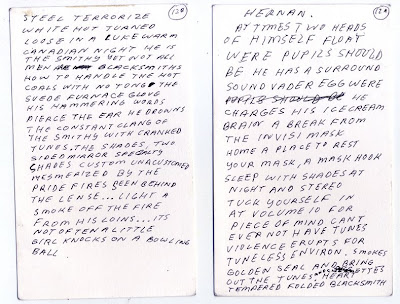 128
STEEL TERRORIZE
WHITE HOT TURNED
LOOSE IN A LUKEWARM
CANADIAN NIGHT HE IS
THE SMITHY YET NOT ALL
MEN BLACKSMITHS
HOW TO HANDLE THE HOT
COALS WITH NO TONGS THE
SUEDE FURNACE GLOVE
HIS HAMMERING WORDS
PIERCE THE EAR HE DROWNS
THE CONSTANT CLANG OF
THE SMITHY WITH CRANKED
TUNES, THE SHADES, TWO
SIDED MIRROR SPECIALTY
SHADES CUSTOM UNACUSTOMED
MESMERIZED BY THE
PRIDE FIRES BEHIND
THE LENSE... LIGHT A
SMOKE OFF THE FIRE
FROM HIS LOINS... ITS
NOT OFTEN A LITTLE
GIRL KNOCKS ON A BOWLING
BALL.
129
HERNAN.
AT TIMES TWO HEADS
OF HIMSELF FLOAT
WERE PUPILS SHOULD
BE HE HAS A SURROUND
SOUND VADER EGG WERE
PUPILS SHOULD BE HE
CHARGES HIS ICECREAM
BRAIN A BREAK FROM
THE INVISI MASK
HOME A PLACE TO REST
YOUR MASK, A MASK HOOK
SLEEP WITH SHADES AT
NIGHT AND STEREO
TUCK YOURSELF IN
AT VOLUME 10 FOR
PIECE OF MIND CANT
EVEN NOT HAVE TUNES
VIOLENCE ERUPTS FOR
TUNELESS ENVIRON, SMOKES
GOLDEN SEAL AND BRING
OUT THE TUNES HEART
TEMPERED FOLDED BLACKSMITH